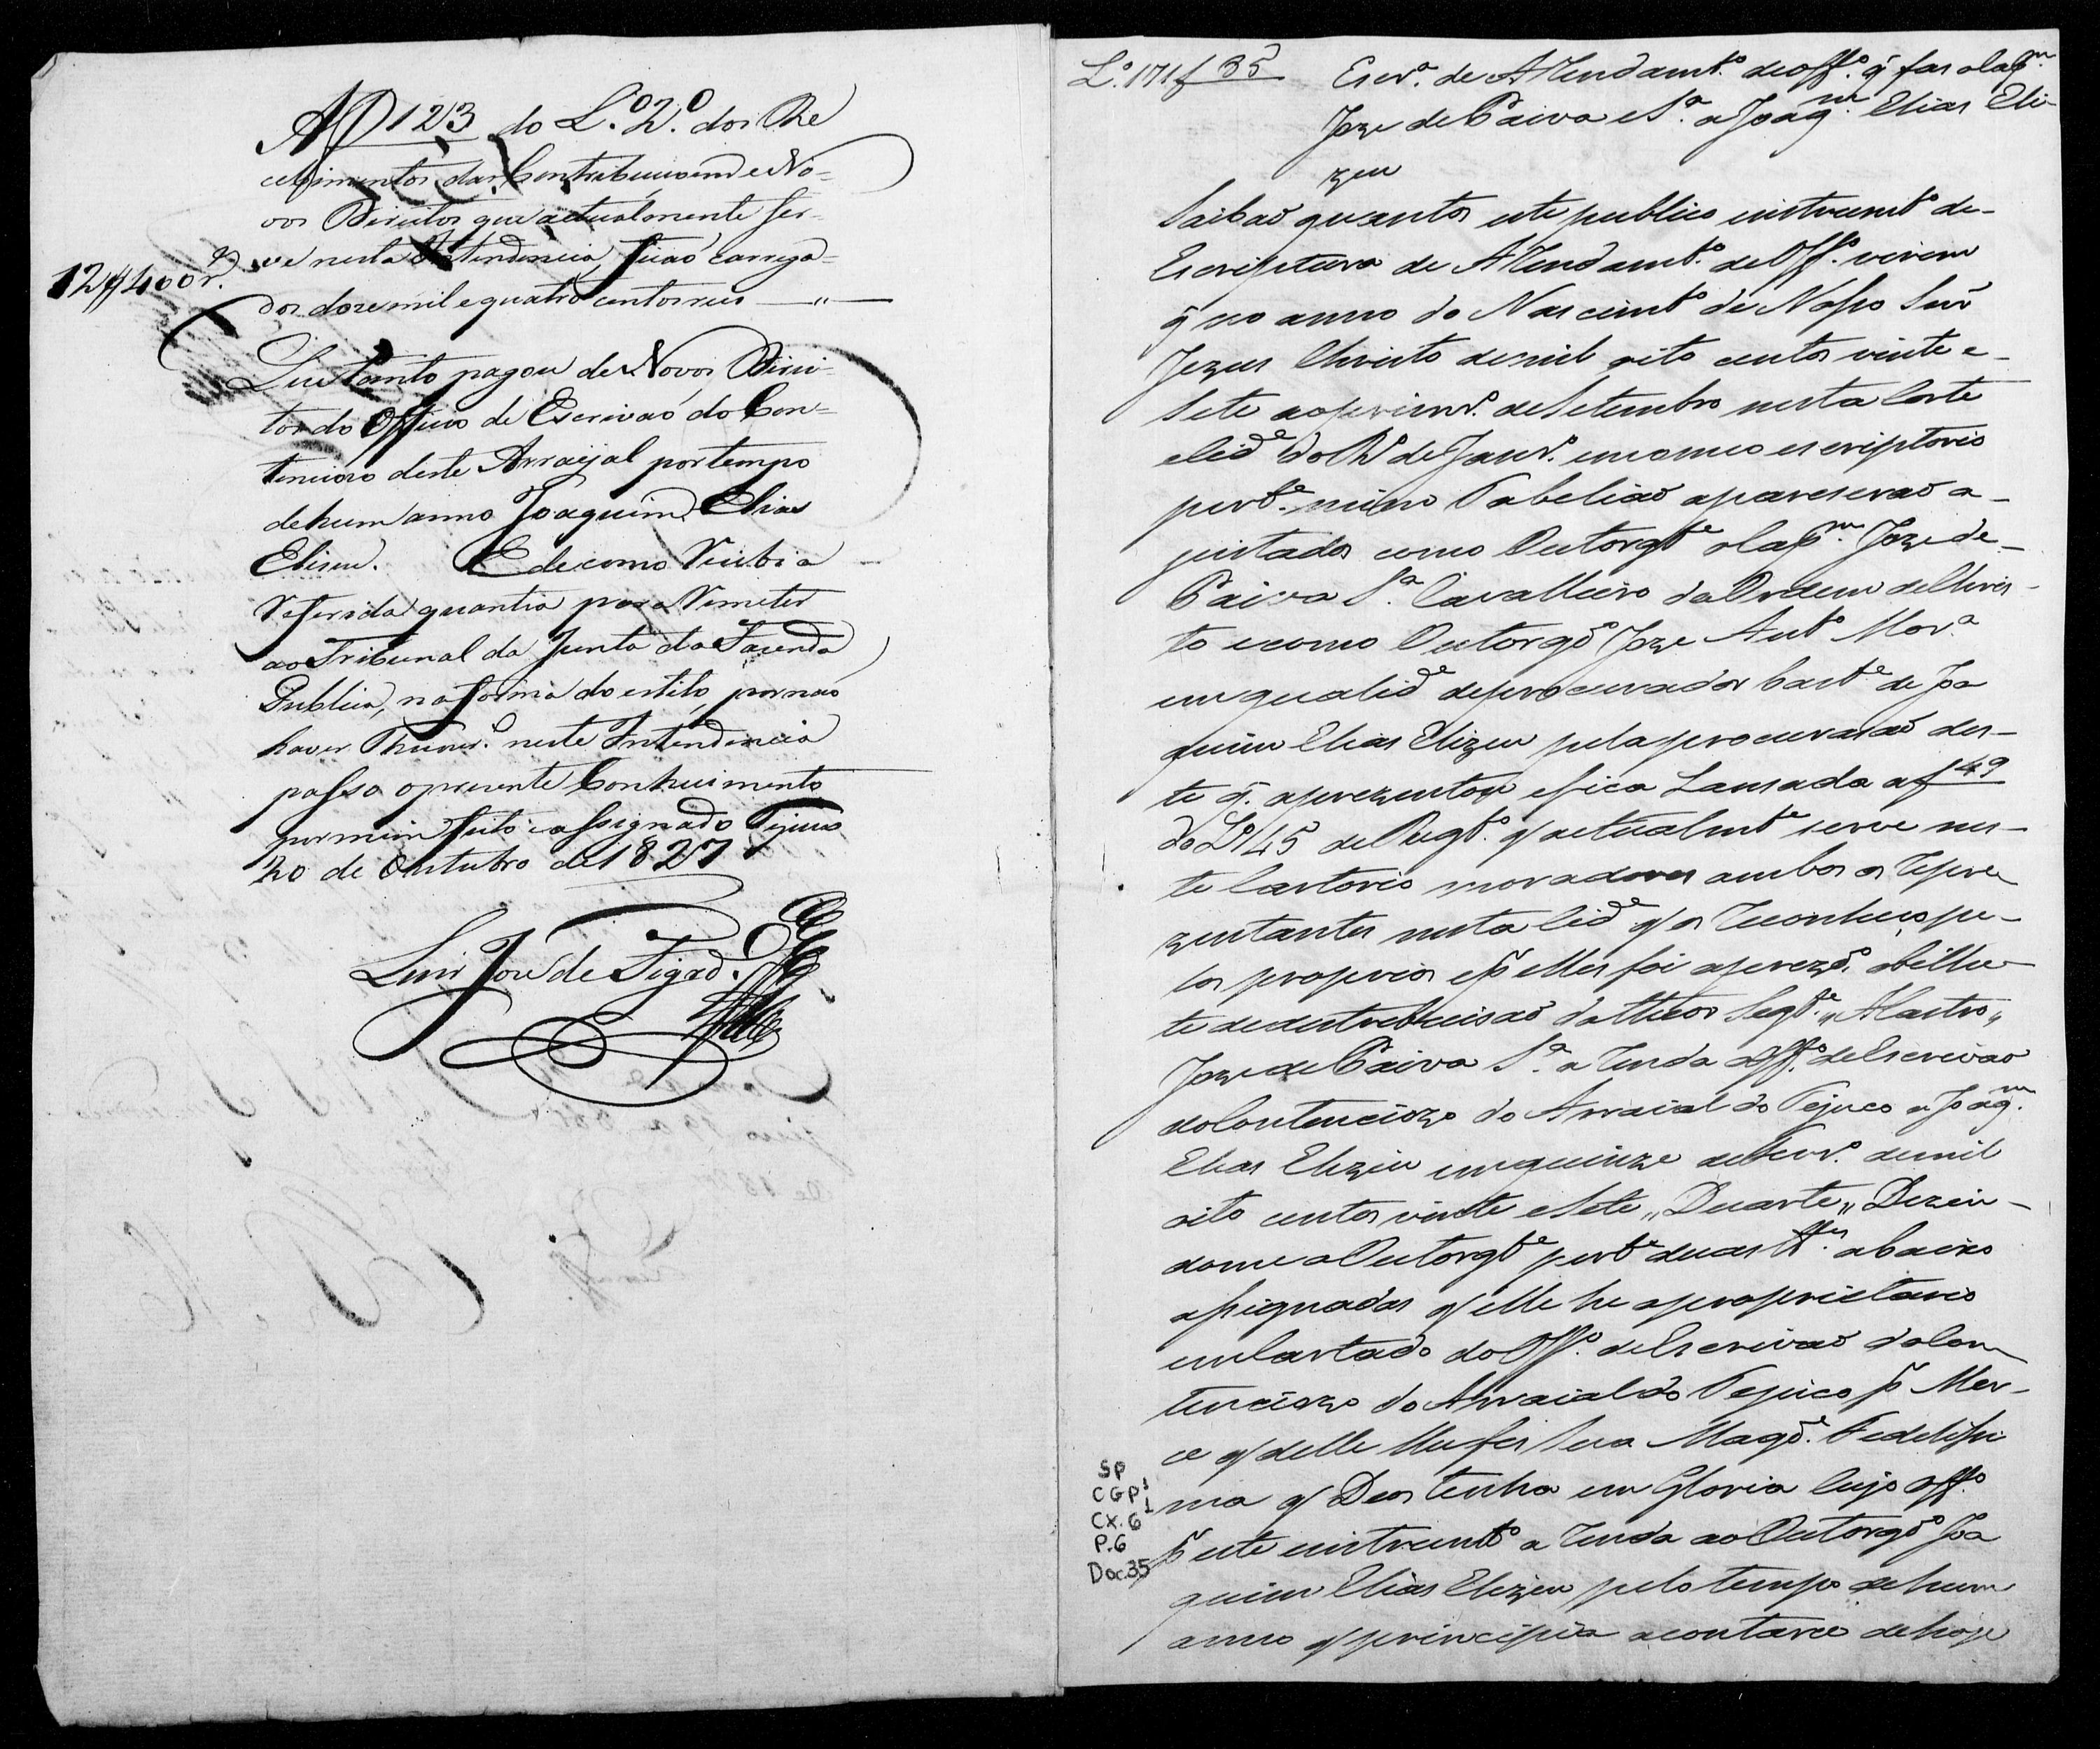 Af 123 do L.º 2.º dos Re
cebimentos das Contribuiçoens e No=
vos Direitos que actualmente ser=
ve nesta Intendencia, ficaõ carrega=
12$400 r.s
dos doze mil e quatro centos reis
Que tanto pagou de Novos Direi=
tos do Officio de Escrivaõ do Con=
tencioso deste Arraýal por tempo
de hum anno Joaquim Elias
Eliseu. E de como Recebi a
Referida quantia para Remeter
ao Tribunal da Junta da Fazenda
Publica, na forma do estilo, por naõ
haver Thezour.º nesta Intendencia
passo o prezente Conhecimento
por mim feito e assignado Tejuco
20 de Outubro de 1827
Luis Jozé de Figrd.º
L.º 171 f 35
Escr.ª de ARendamt.º de off.º q̃ fas o Cap.m
Joze de Paiva e S.ª a Joaq.m Elias Eli-
zeu
Saibaõ quantos este publico instrumt.º de-
Escriptura de ARendamt.º de Off.º virem
q̃ no anno do Nascimt.º de Nosso Snr̃
Jezus Christo de mil oito centos vinte e-
Sete ao primr.º de Setembro nesta Corte
e Cid.e do R.º de Janr.º em o meo escriptorio
pert.e mim Tabeliaõ apareseraõ a-
justados como Outorgt.e o Cap.m Joze de-
Paiva S.ª Cavalleiro da Ordem de Chris-
to e como Outorgd.º Joze Ant.º Mor.ª
em qualid.e de procurador bast.e de Joa
quim Elias Elizeu pela procurasaõ des-
te q̃. aprezentou e fica Lansada a f 49
do L.º 45 de Regt.º q̃ actualmt.e serve nes-
te Cartorio moradores ambos os Repre
zentantes nesta Cid.e q̃ os Reconheço pe-
los proprios e p̃ elles foi aprezd.º o bilhe-
te de destrebuisaõ do theor Segt.e "A Castro"
Joze de Paiva S.ª aRenda o Off.º de Escrivaõ
do Contenciozo do Arraial do Tejuco a Joaq.m
Elias Elizeu em quinze de Fevr.º de mil
oito centos vinte e Sete "Duarte" Dezen-
dome o Outorgt.e pert.e duas tt.as abaixo
asignadas q̃ elle he o proprietario
encartado do Off.º de Escrivaõ do Con
tenciozo do Arraial do Tejuco p̃ Mer-
ce q̃ delle lhe fes Sua Magd.e Fedelissi
ma q̃ Deos tenha em Gloria Cujo off.º
p̃ este instrumt.º aRenda ao Outorgd.º Joa
quim Elias Elizeu pelo tempo de hum
anno q̃ principia a contarce de hoje
SP
CGP¹
1
CX. 6
P. 6
Doc. 35